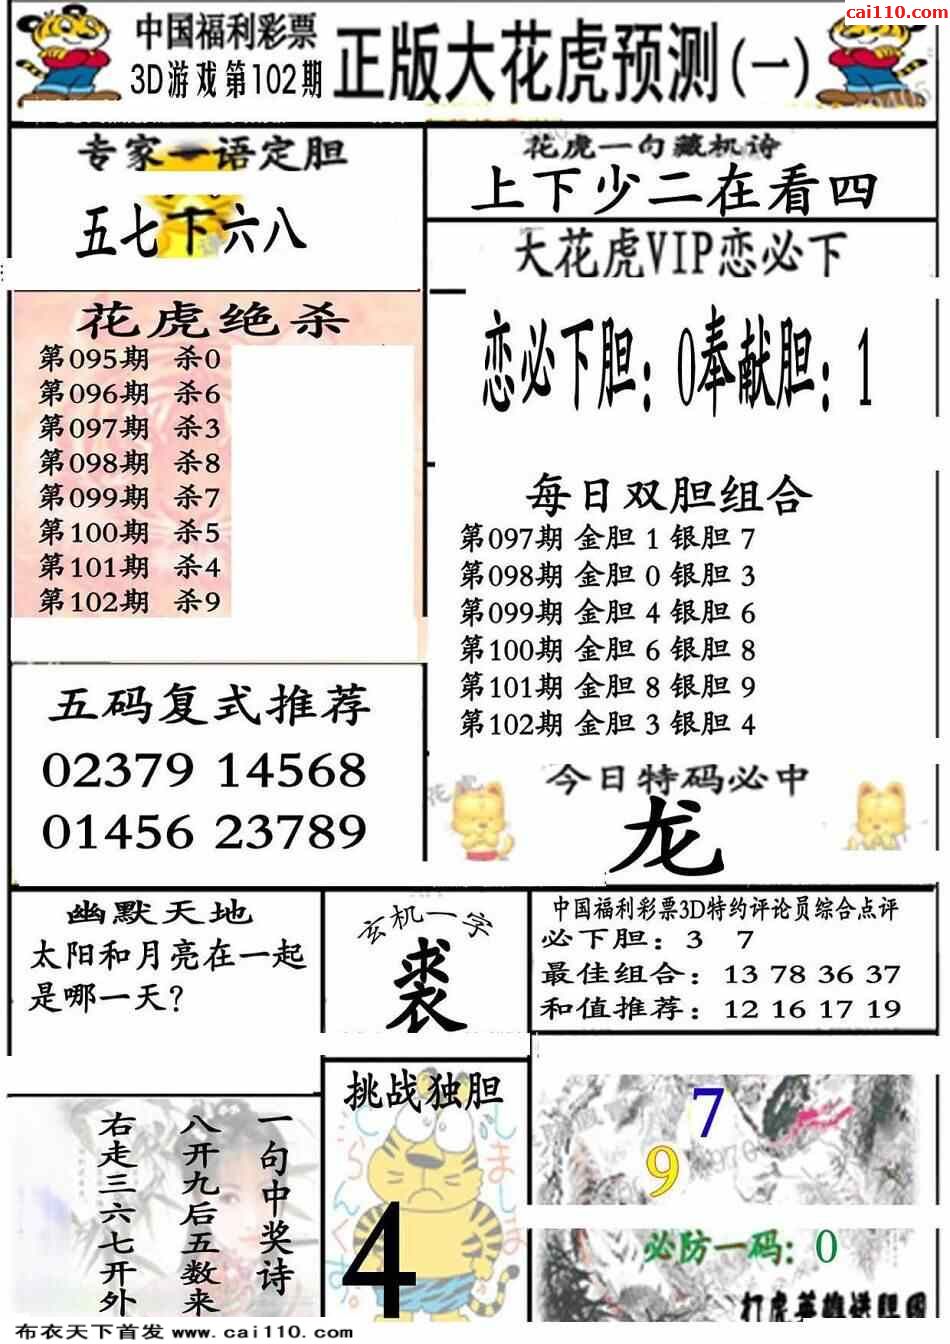 cai110.com
中国福利彩票
3D游戏第102期
正版大花虎预测(一)
专家一语定胆
五七下六八
花虎一句藏机诗
上下少二在看四
大花虎VIP恋必下
恋必下胆：0奉献胆：1
花虎绝杀
第095期 杀0
第096期 杀6
第097期 杀3
第098期 杀8
第099期 杀7
第100期 杀5
第101期 杀4
第102期 杀9
每日双胆组合
第097期 金胆 1 银胆 7
第098期 金胆 0 银胆 3
第099期 金胆 4 银胆 6
第100期 金胆 6 银胆 8
第101期 金胆 8 银胆 9
第102期 金胆 3 银胆 4
五码复式推荐
02379 14568
01456 23789
今日特码必中
龙
幽默天地
太阳和月亮在一起
是哪一天?
玄机一字
裘
中国福利彩票3D特约评论员综合点评
必下胆：3 7
最佳组合：13 78 36 37
和值推荐：12 16 17 19
一句中奖诗
八开九后五数来
右走三六七开外
挑战独胆
4
7
9
必防一码：0
打虎英雄
布衣天下首发 www.cai110.com